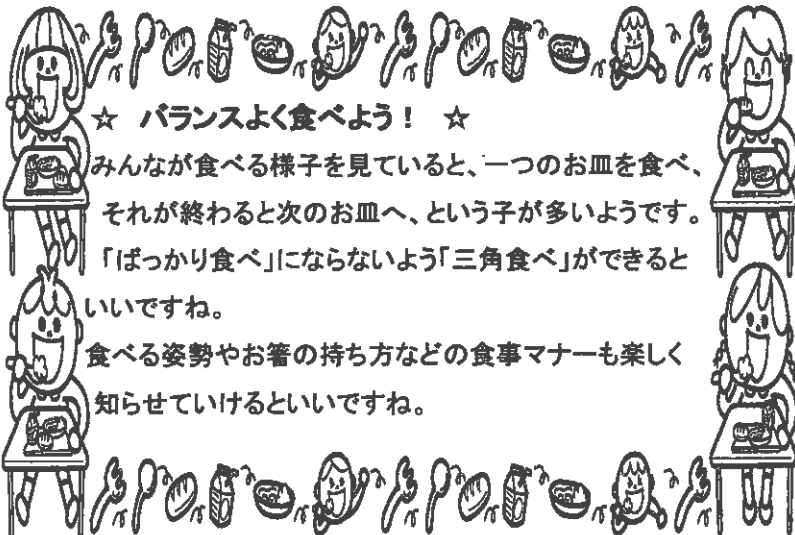 ☆ バランスよく食べよう！ ☆
みんなが食べる様子を見ていると、一つのお皿を食べ、
それが終わると次のお皿へ、という子が多いようです。
「ばっかり食べ」にならないよう「三角食べ」ができると
いいですね。
食べる姿勢やお箸の持ち方などの食事マナーも楽しく
知らせていけるといいですね。